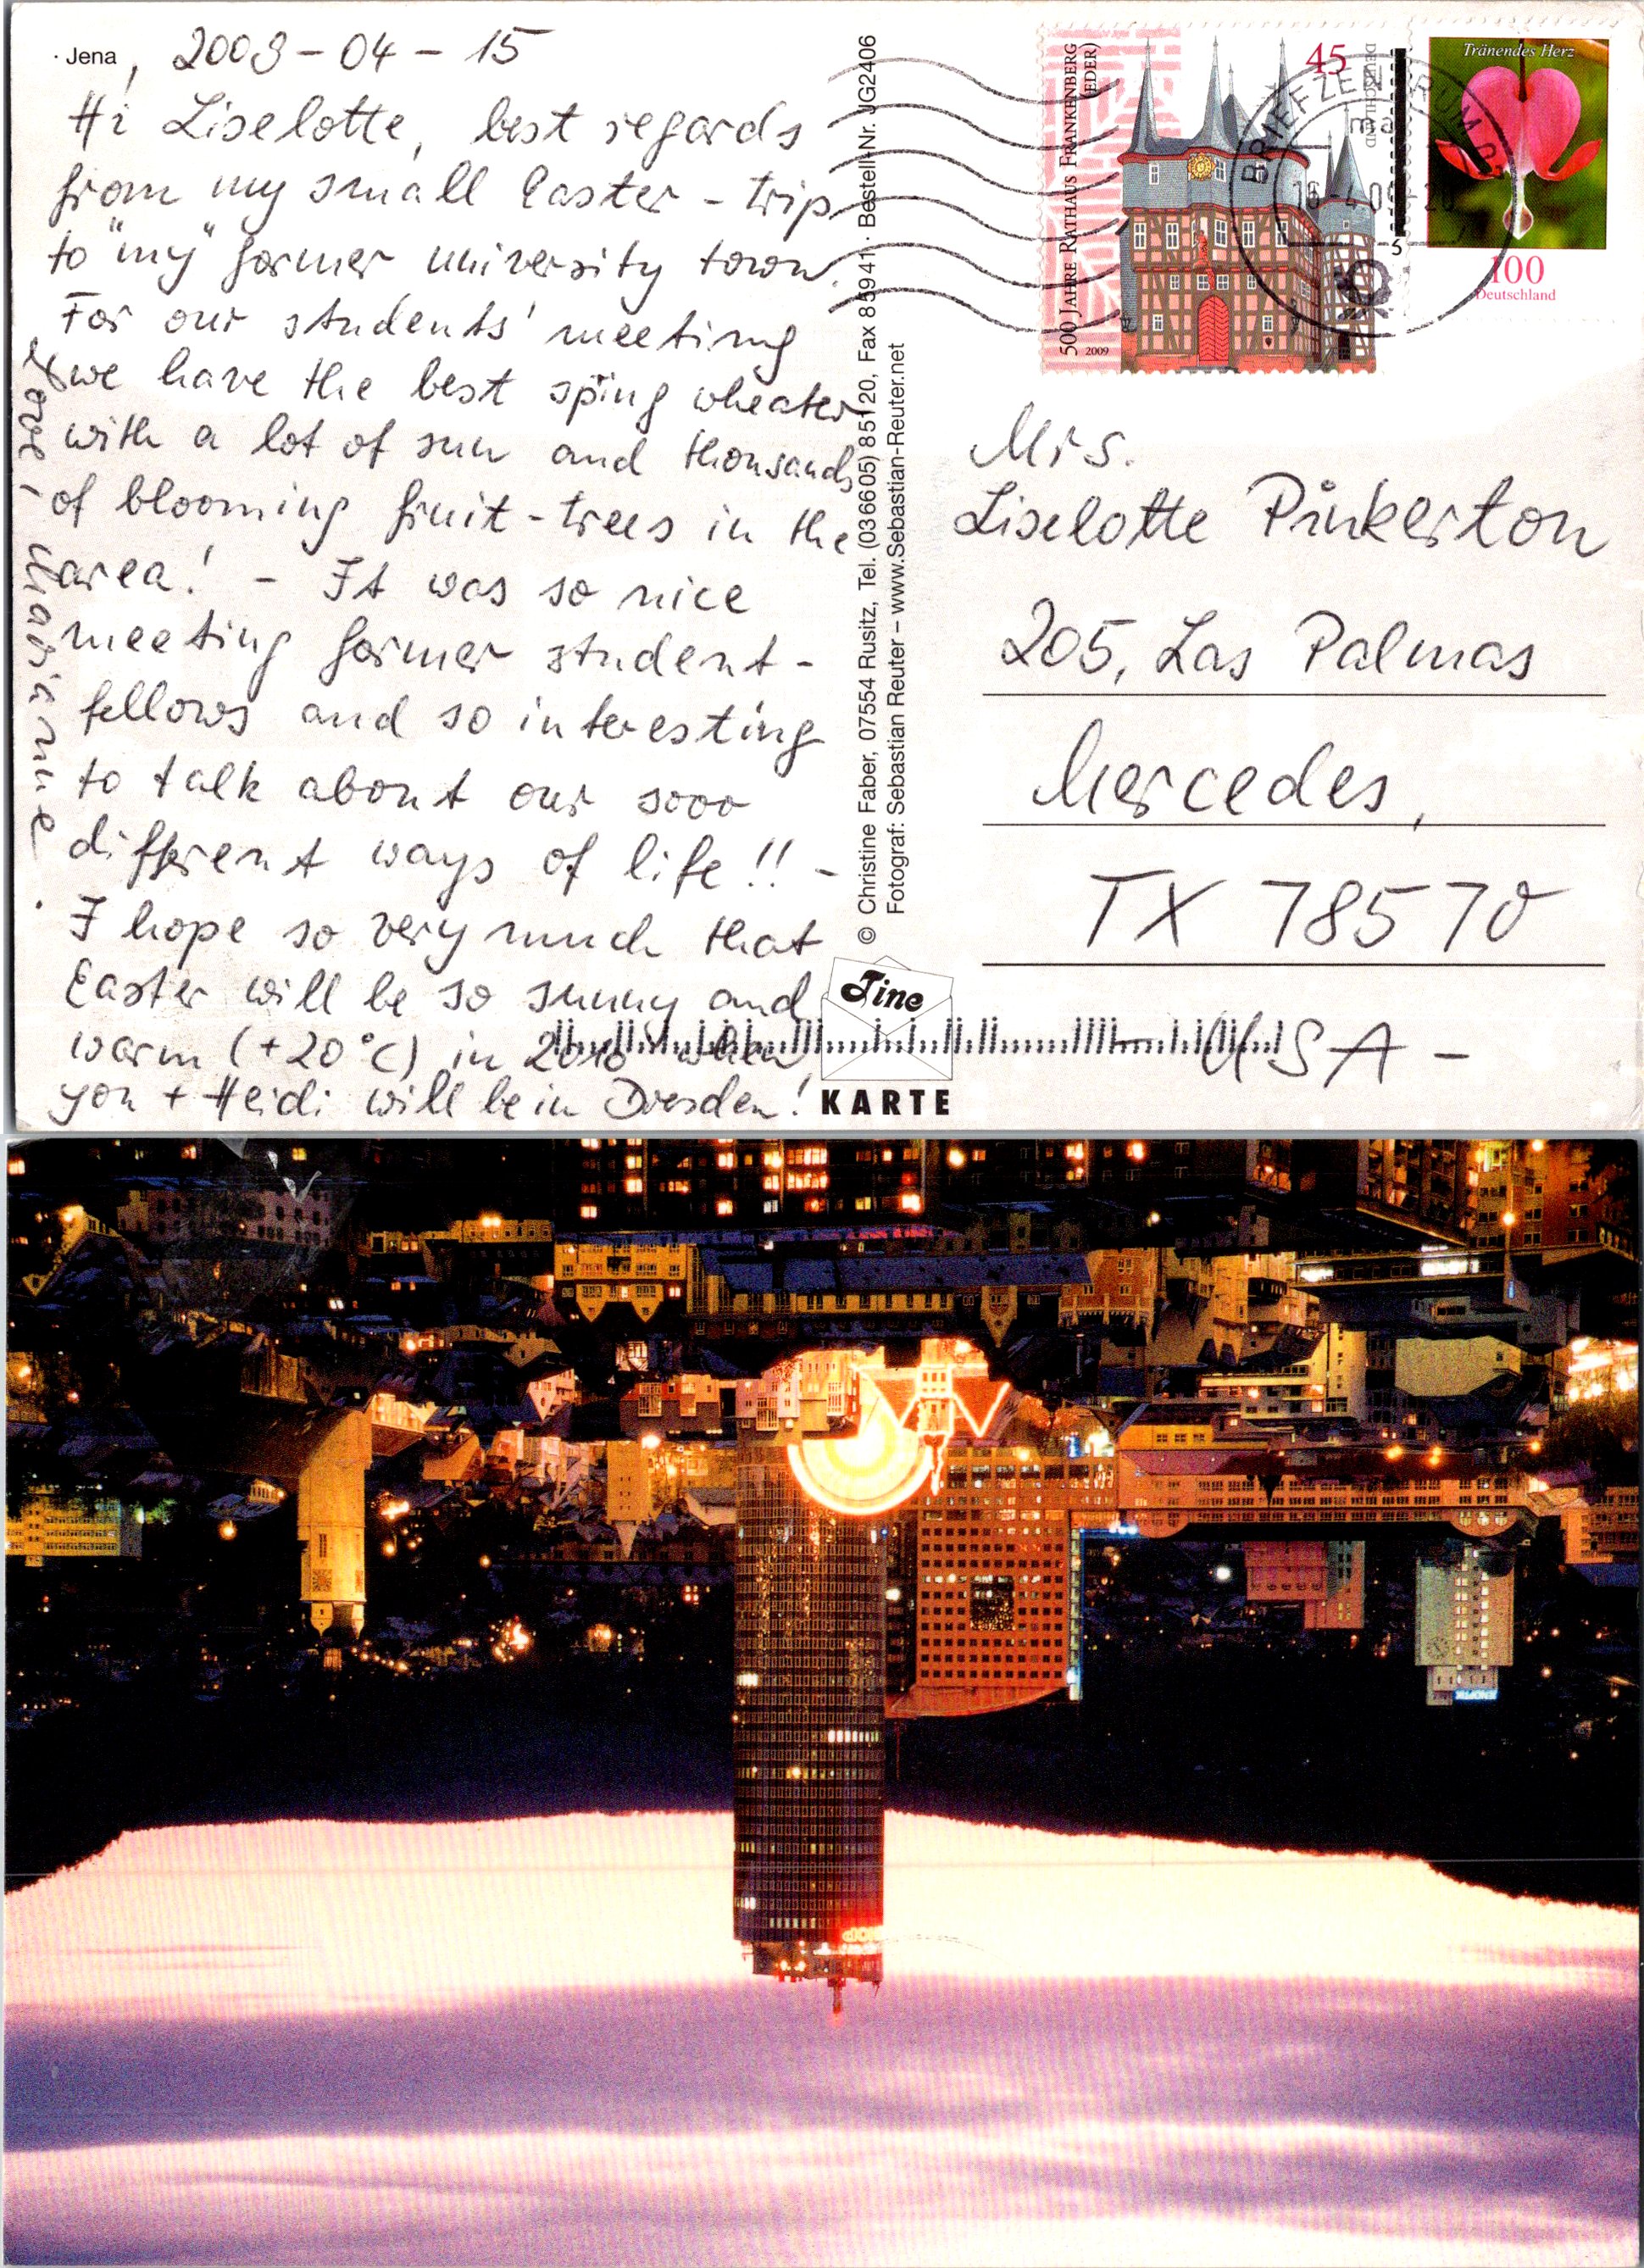 · Jena, 2009-04-15
Hi Liselotte, best regards
from my small Easter-trip
to "my" former university town.
For our students' meeting
we have the best sping wheater
with a lot of sun and thousands
of blooming fruit-trees in the
area! - It was so nice
meeting former student-
fellows and so interesting
to talk about our sooo
different ways of life!! -
I hope so very much that
Easter will be so sunny and
warm (+20°C) in 2010 when
you + Heidi will be in Dresden!
Love, Marianne.
© Christine Faber, 07554 Rusitz, Tel. (036605) 85120, Fax 85941 · Bestell-Nr. JG2406
Fotograf: Sebastian Reuter – www.Sebastian-Reuter.net
Tine
KARTE
500 JAHRE RATHAUS FRANKENBERG
(EDER)
2009
45
DEUTSCHLAND
BRIEFZENTRUM
Tränendes Herz
100
Deutschland
Mrs.
Liselotte Pinkerton
205, Las Palmas
Mercedes,
TX 78570
- USA -
JENOPTIK